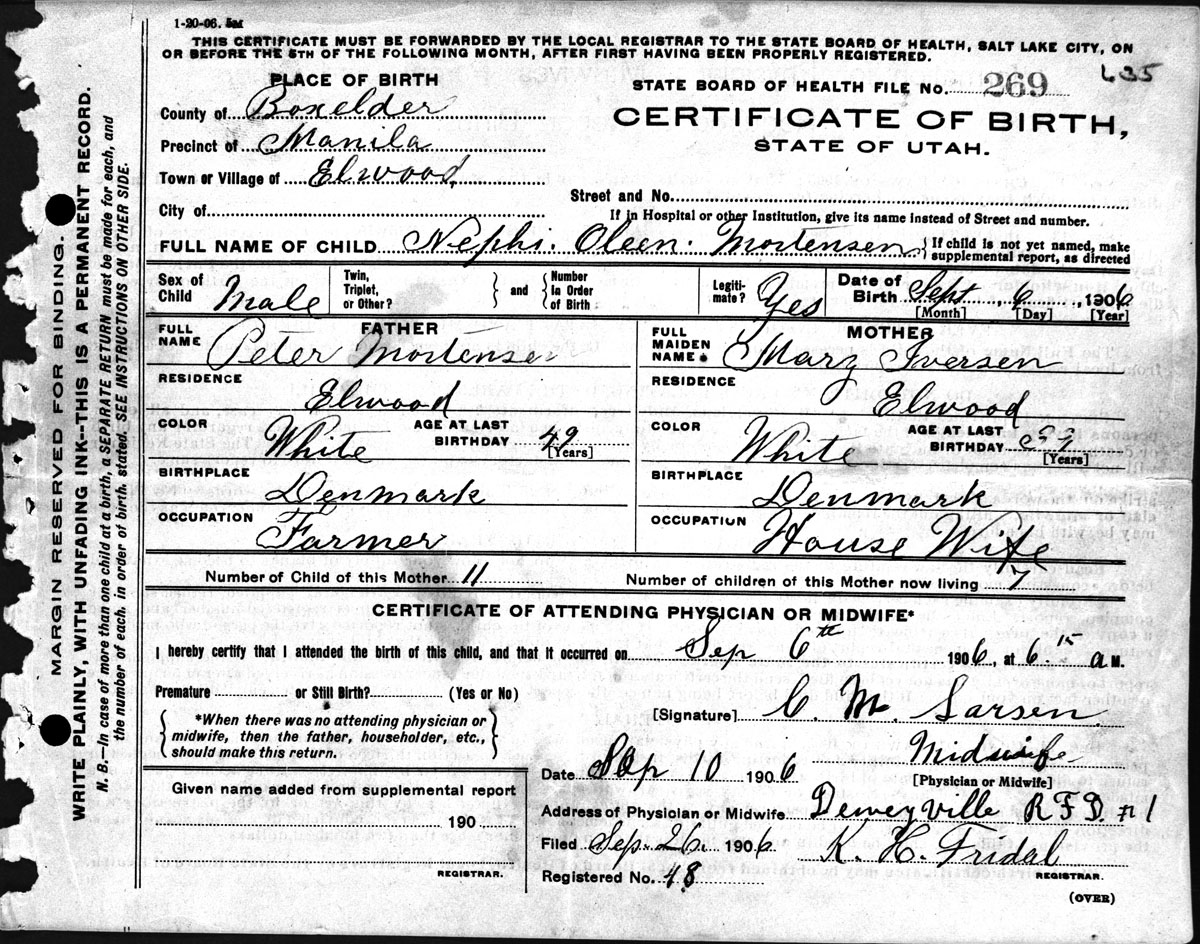 1-20-06.
THIS CERTIFICATE MUST BE FORWARDED BY THE LOCAL REGISTRAR TO THE STATE BOARD OF HEALTH, SALT LAKE CITY, ON
OR BEFORE THE 5TH OF THE FOLLOWING MONTH, AFTER FIRST HAVING BEEN PROPERLY REGISTERED.
635
PLACE OF BIRTH
STATE BOARD OF HEALTH FILE No. 269
County of Boxelder
CERTIFICATE OF BIRTH,
Precinct of Manila
STATE OF UTAH.
Town or Village of Elwood
Street and No.
City of
If in Hospital or other Institution, give its name instead of Street and number.
FULL NAME OF CHILD Nephi. Oleen. Mortensen { If child is not yet named, make
supplemental report, as directed
Sex of Child Male
Twin, Triplet, or Other? } and { Number in Order of Birth
Legiti-mate? Yes
Date of Birth Sept 6, 1906
[Month] [Day] [Year]
FATHER
FULL NAME Peter Mortensen
RESIDENCE
Elwood
COLOR White AGE AT LAST BIRTHDAY 49
[Years]
BIRTHPLACE
Denmark
OCCUPATION
Farmer
MOTHER
FULL MAIDEN NAME Mary Iversen
RESIDENCE
Elwood
COLOR White AGE AT LAST BIRTHDAY
[Years]
BIRTHPLACE
Denmark
OCCUPATION
House Wife
Number of Child of this Mother 11 Number of children of this Mother now living 7
CERTIFICATE OF ATTENDING PHYSICIAN OR MIDWIFE*
I hereby certify that I attended the birth of this child, and that it occurred on Sep 6th 1906, at 6.15 a M.
Premature or Still Birth? (Yes or No)
{ *When there was no attending physician or
midwife, then the father, householder, etc.,
should make this return. }
[Signature] C. M. Larsen
Midwife
[Physician or Midwife]
Date Sep 10 1906
Address of Physician or Midwife Deweyville R F D. #1
Filed Sep. 26. 1906 K. H. Fridal
REGISTRAR.
Registered No. 48
(OVER)
Given name added from supplemental report
190
REGISTRAR.
MARGIN RESERVED FOR BINDING.
WRITE PLAINLY, WITH UNFADING INK--THIS IS A PERMANENT RECORD.
N. B.—In case of more than one child at a birth, a SEPARATE RETURN must be made for each, and
the number of each, in order of birth, stated. SEE INSTRUCTIONS ON OTHER SIDE.